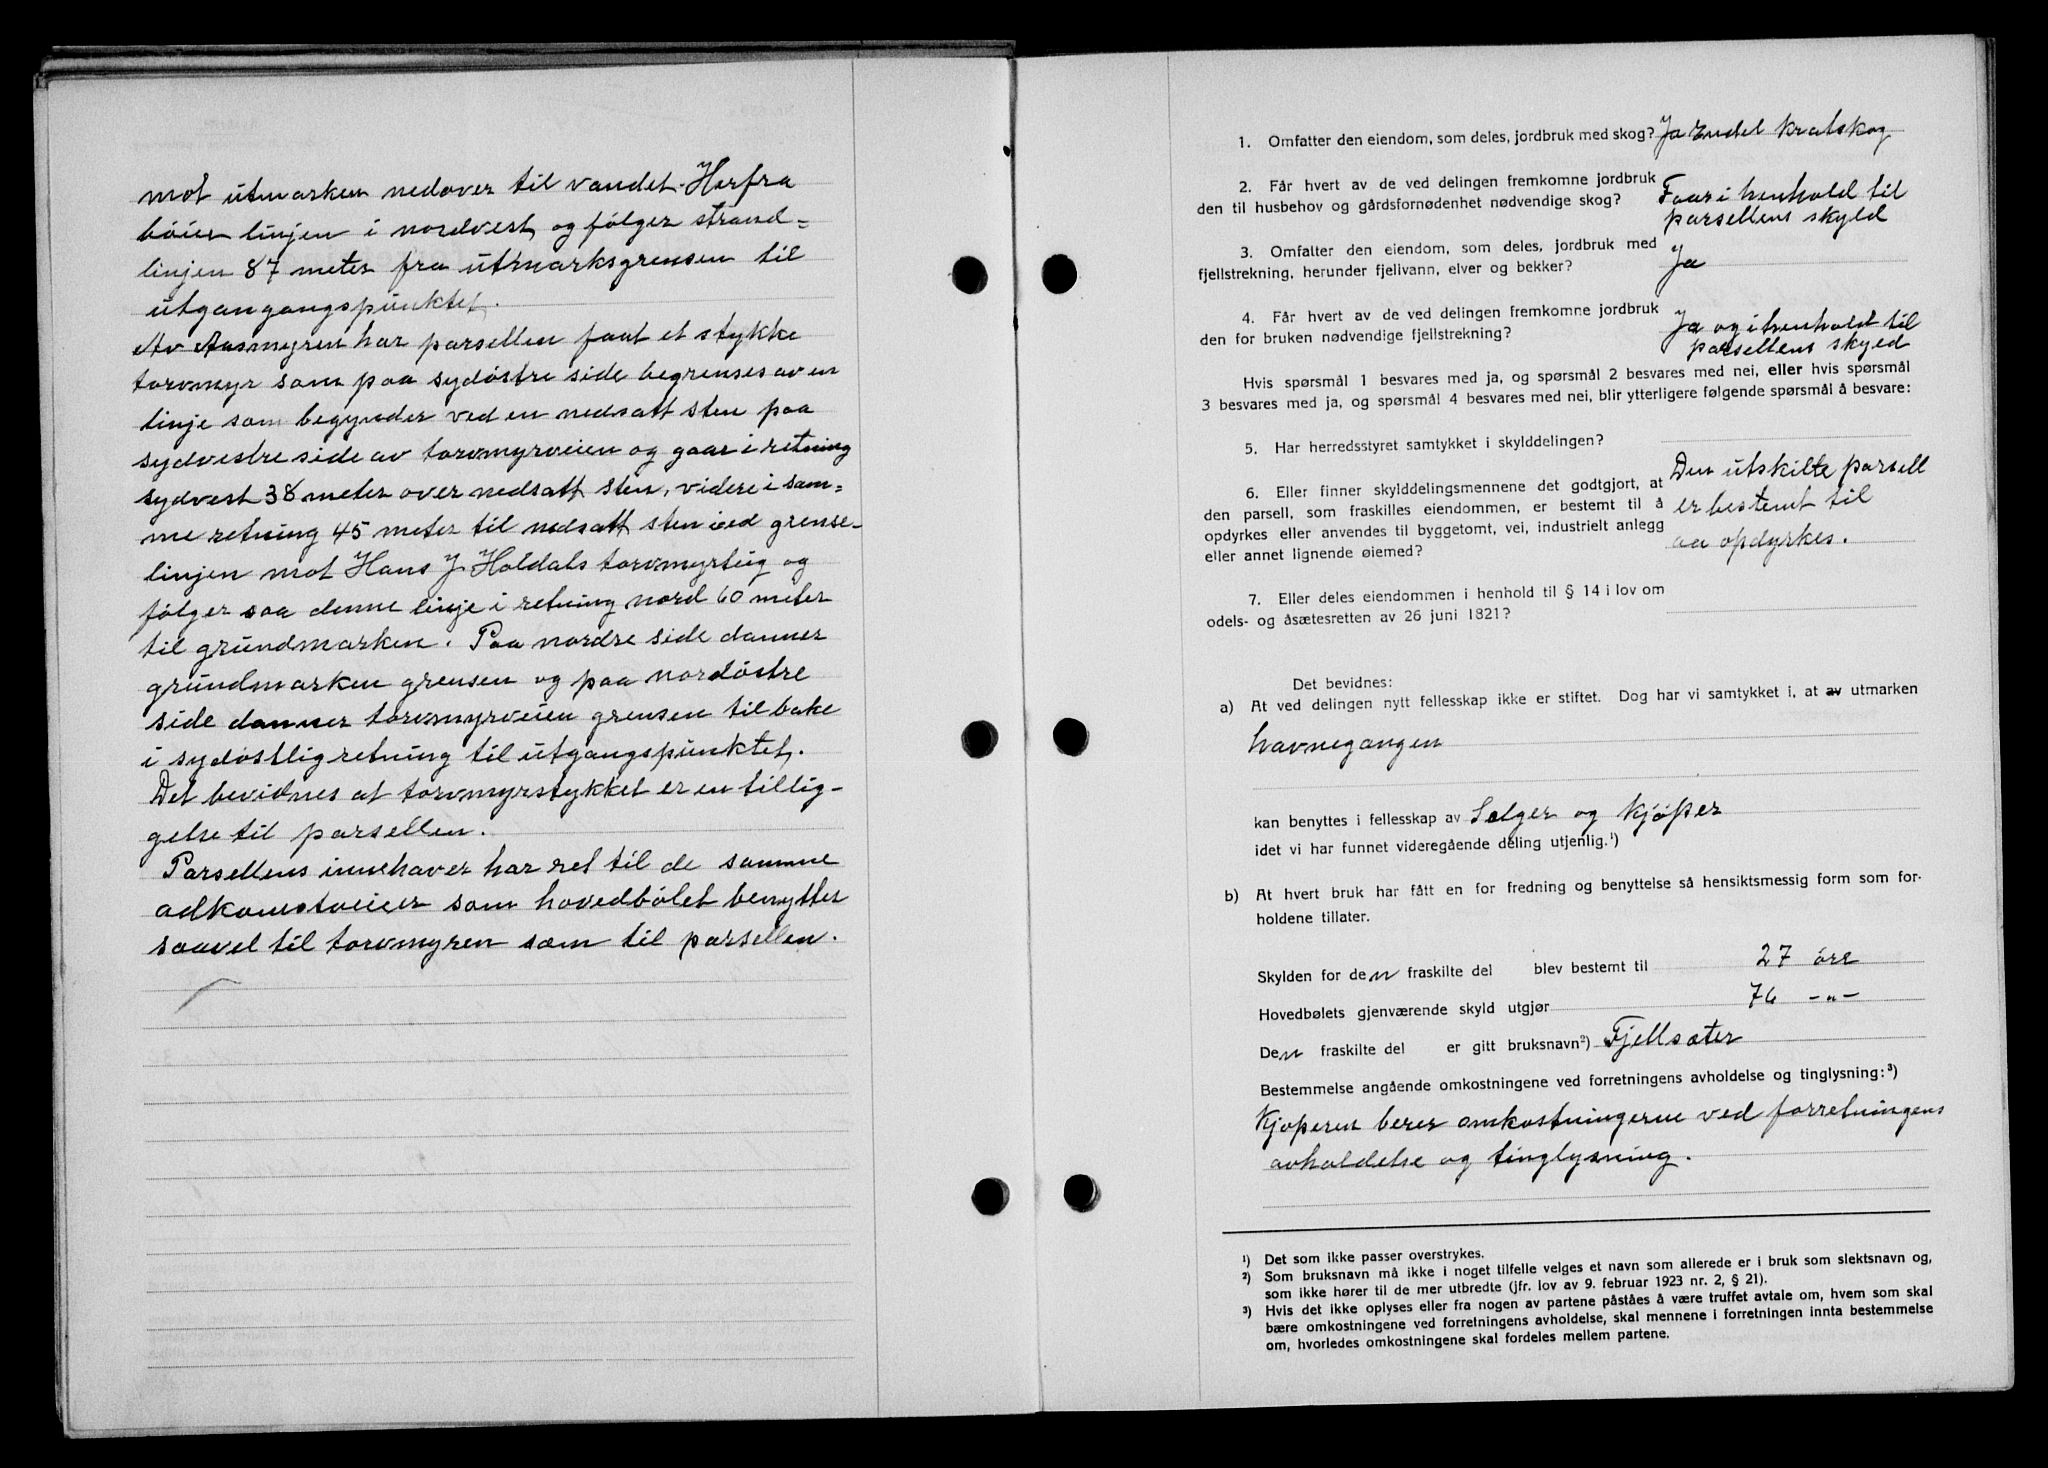 mot utmarken nedover til vandet. Herfra
bøier linjen i nordvest og følger strand=
linjen 87 meter fra utmarksgrensen til
utgangangspunktet.
Av Aasmyren har parsellen faat et stykke
torvmyr som paa sydøstre side begrenses av en
linje som begynder ved en nedsatt sten paa
sydvestre side av torvmyrveien og gaar i retning
sydvest 38 meter over nedsatt sten, videre i sam=
me retning 45 meter til nedsatt sten ved grense-
linjen mot Hans J Holdals torvmyrteig og
følger saa denne linje i retning nord 60 meter
til grundmarken. Paa nordre side danner
grundmarken grensen og paa nordøstre
side danner torvmyrveien grensen tilbake
i sydøstlig retning til utgangspunktet.
Det bevidnes at torvmyrstykket er en tillig-
gelse til parsellen.
Parsellens innehaver har ret til de samme
adkomstveier som hovedbølet benytter
saavel til torvmyren som til parsellen.
1. Omfatter den eiendom, som deles, jordbruk med skog? Ja endel kratskog
2. Får hvert av de ved delingen fremkomne jordbruk
den til husbehov og gårdsfornødenhet nødvendige skog? Faar i henhold til
parsellens skyld
3. Omfatter den eiendom, som deles, jordbruk med
fjellstrekning, herunder fjellvann, elver og bekker? Ja
4. Får hvert av de ved delingen fremkomne jordbruk
den for bruken nødvendige fjellstrekning? Ja og i henhold til
parsellens skyld
Hvis spørsmål 1 besvares med ja, og spørsmål 2 besvares med nei, eller hvis spørsmål
3 besvares med ja, og spørsmål 4 besvares med nei, blir ytterligere følgende spørsmål å besvare:
5. Har herredsstyret samtykket i skylddelingen?
6. Eller finner skylddelingsmennene det godtgjort, at
den parsell, som fraskilles eiendommen, er bestemt til å
opdyrkes eller anvendes til byggetomt, vei, industrielt anlegg
eller annet lignende øiemed?
Den utskilte parsell
er bestemt til
aa opdyrkes.
7. Eller deles eiendommen i henhold til § 14 i lov om
odels- og åsætesretten av 26 juni 1821?
Det bevidnes:
a) At ved delingen nytt fellesskap ikke er stiftet. Dog har vi samtykket i, at av utmarken
havnegangen
kan benyttes i fellesskap av Selger og kjøper
idet vi har funnet videregående deling utjenlig.¹)
b) At hvert bruk har fått en for fredning og benyttelse så hensiktsmessig form som for-
holdene tillater.
Skylden for den fraskilte del blev bestemt til 27 øre
Hovedbølets gjenværende skyld utgjør 76 -"-
Den fraskilte del er gitt bruksnavn²) Fjellsæter
Bestemmelse angående omkostningene ved forretningens avholdelse og tinglysning:³)
Kjøperen berer omkostningerne ved forretningens
avholdelse og tinglysning.
¹) Det som ikke passer overstrykes.
²) Som bruksnavn må ikke i noget tilfelle velges et navn som allerede er i bruk som slektsnavn og,
som ikke hører til de mer utbredte (jfr. lov av 9. februar 1923 nr. 2, § 21).
³) Hvis det ikke oplyses eller fra nogen av partene påståes å være truffet avtale om, hvem som skal
bære omkostningene ved forretningens avholdelse, skal mennene i forretningen innta bestemmelse
om, hvorledes omkostningene skal fordeles mellem partene.